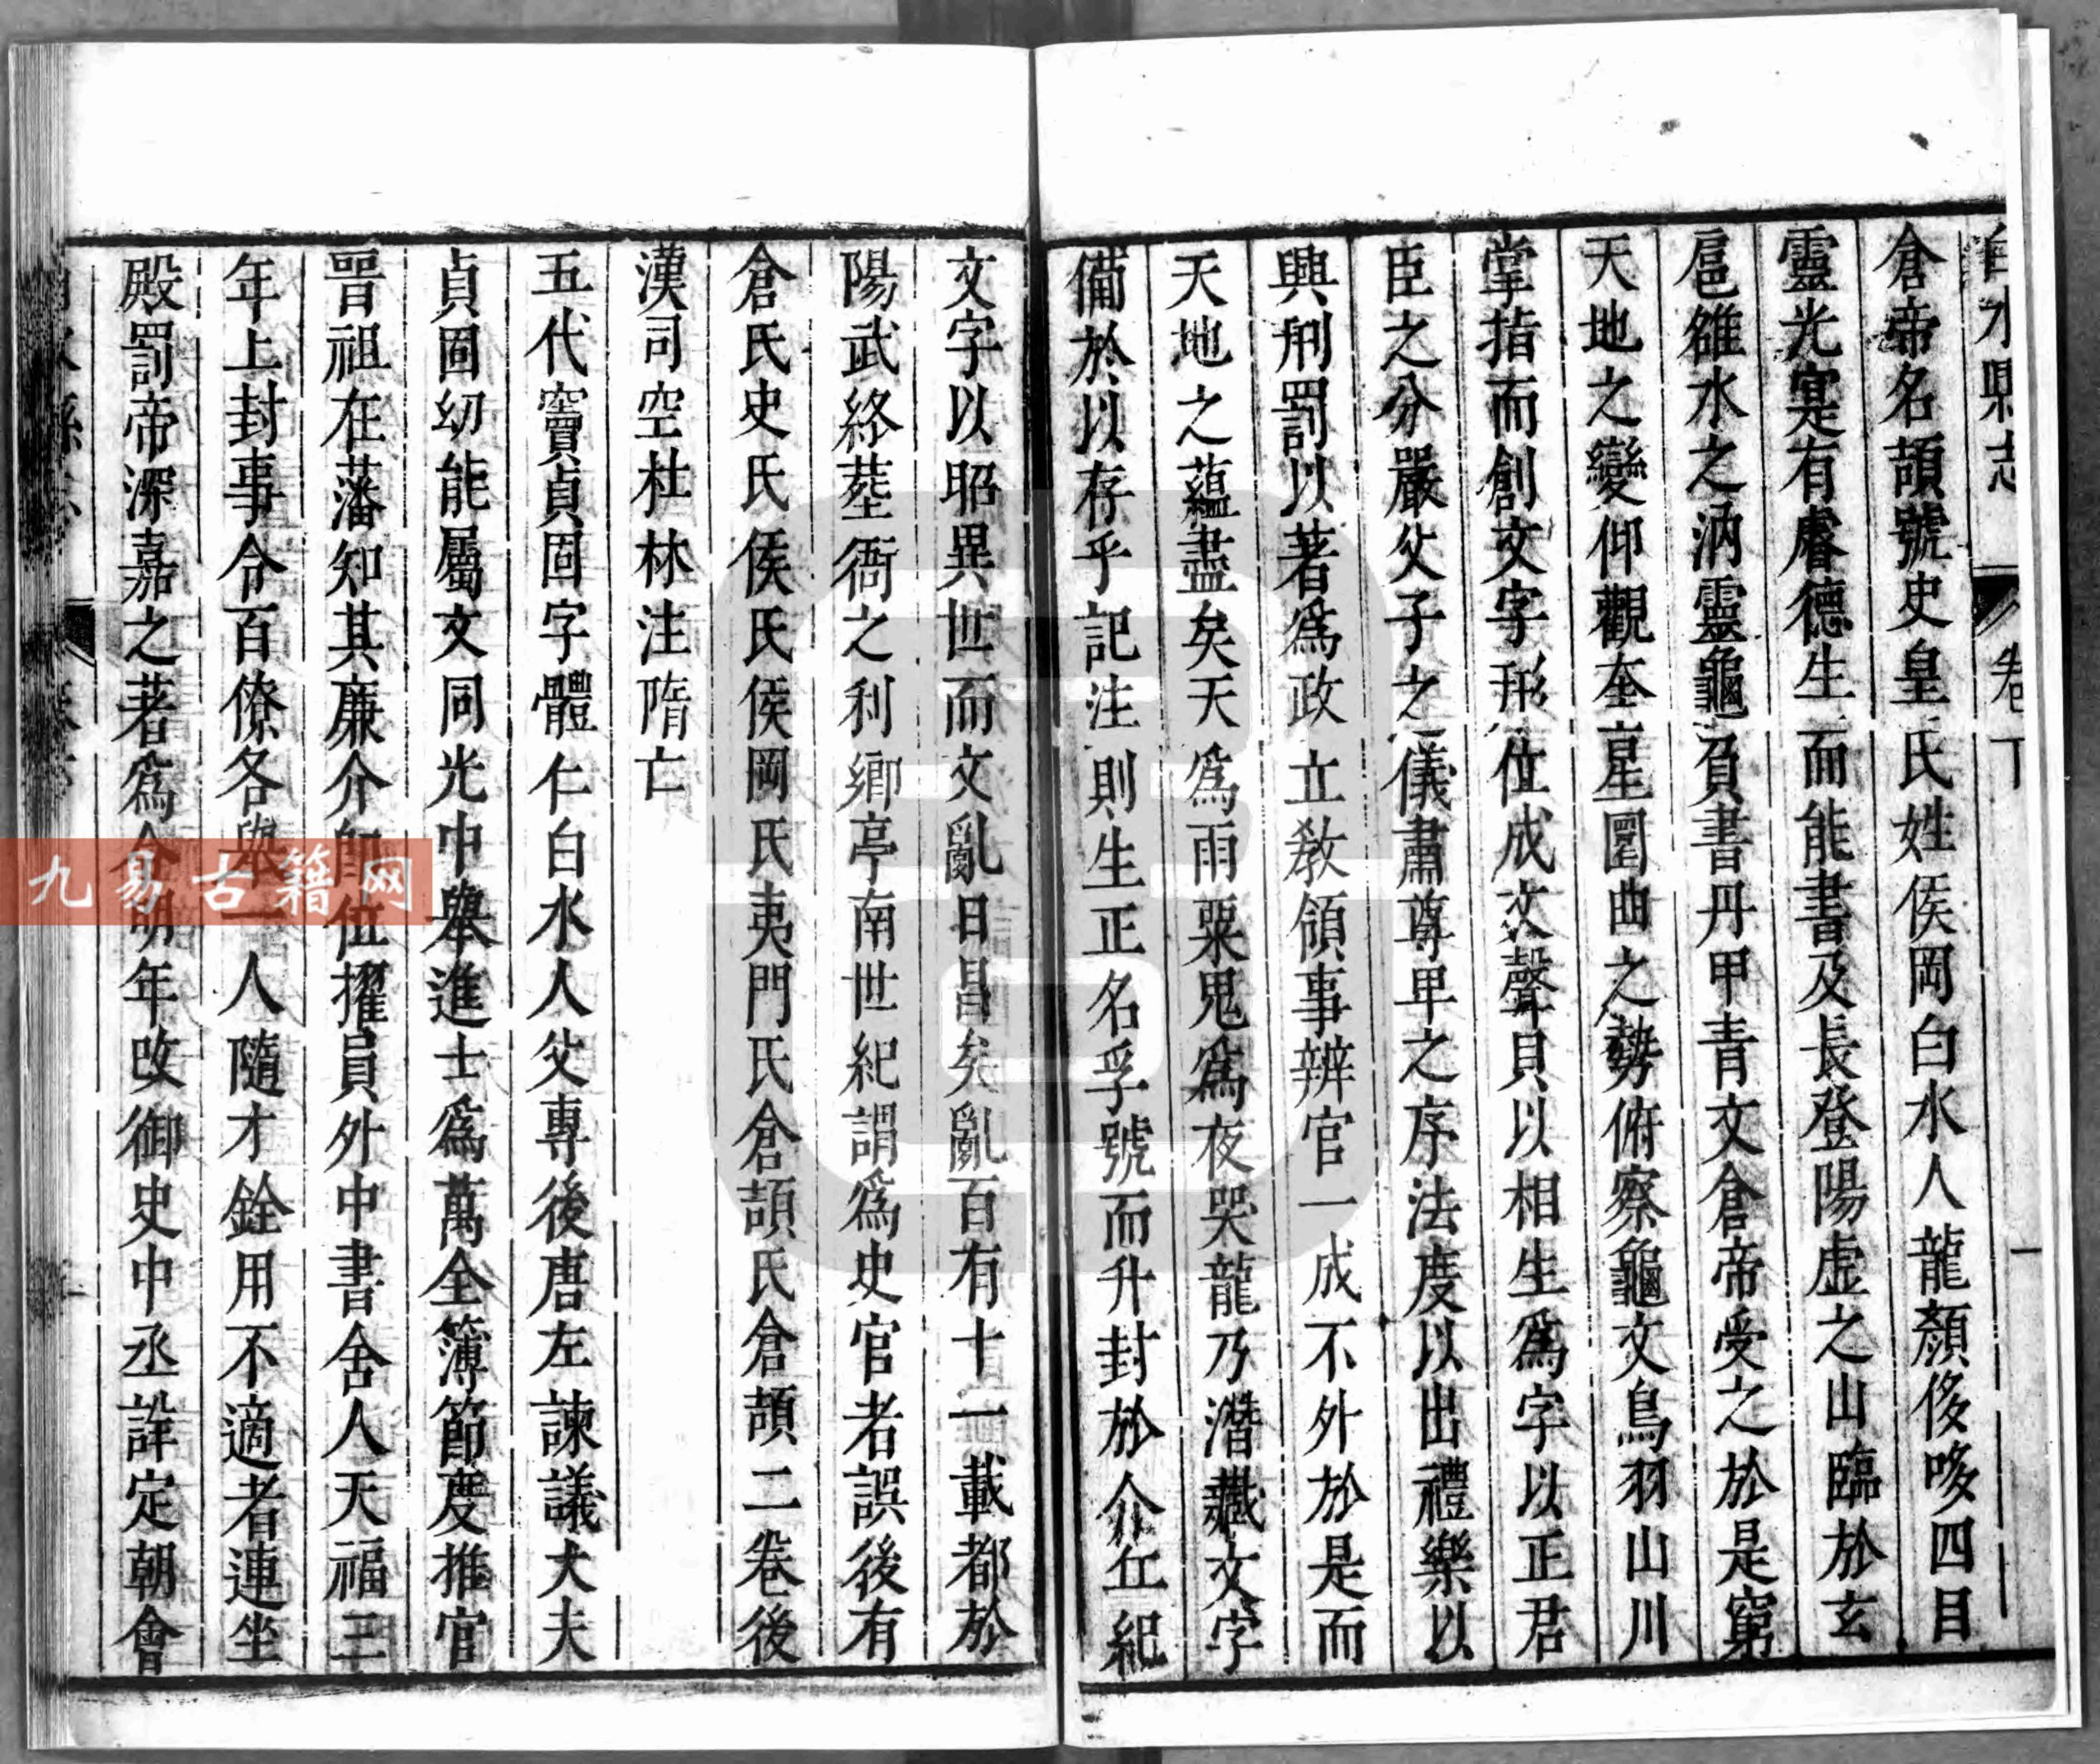 白水縣志
卷下
一
倉帝名頡號史皇氏姓侯岡白水人龍顏侈哆四目
靈光寔有睿德生而能書及長登陽虛之山臨於玄
扈雒水之汭靈龜負書丹甲青文倉帝受之於是窮
天地之變仰觀奎星圜曲之勢俯察龜文鳥羽山川
掌指而創文字形位成文聲具以相生爲字以正君
臣之分嚴父子之儀肅尊卑之序法度以出禮樂以
興刑罰以著爲政立教領事辨官一成不外於是而
天地之蘊盡矣天爲雨粟鬼爲夜哭龍乃潛藏文字
備於以存乎記注則生正名孚號而升封於介丘紀
文字以昭異世而文亂日昌矣亂百有十一載都於
陽武終葬衙之利鄉亭南世紀謂爲史官者誤後有
倉氏史氏侯氏侯岡氏夷門氏倉頡氏倉頡二卷後
漢司空杜林注隋亡
五代竇貞固字體仁白水人父專後唐左諫議大夫
貞固幼能屬文同光中舉進士爲萬全簿節度推官
晉祖在藩知其廉介即位擢員外中書舍人天福三
年上封事令百僚各舉一人隨才銓用不適者連坐
殿罰帝深嘉之著爲令明年改御史中丞詳定朝會
九易古籍网